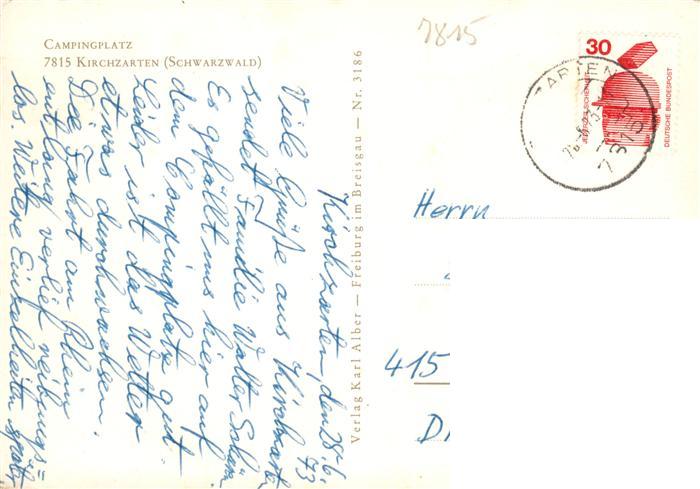 CAMPINGPLATZ
7815 KIRCHZARTEN (SCHWARZWALD)
Verlag Karl Alber — Freiburg im Breisgau — Nr. 3186
Kirchzarten, den 28.6.
73
Viele Grüße aus Kirchzarten
sendet Familie Walter
Es gefällt uns hier auf
dem Campingplatz gut.
Leider ist das Wetter
etwas durchwachsen.
Die Fahrt am Rhein
entlang verlief reibungs=
los. Weitere Einzelheiten später
7815
30
JEDERZEIT SICHERHEIT
DEUTSCHE BUNDESPOST
ARTEN
7815
Herrn
415